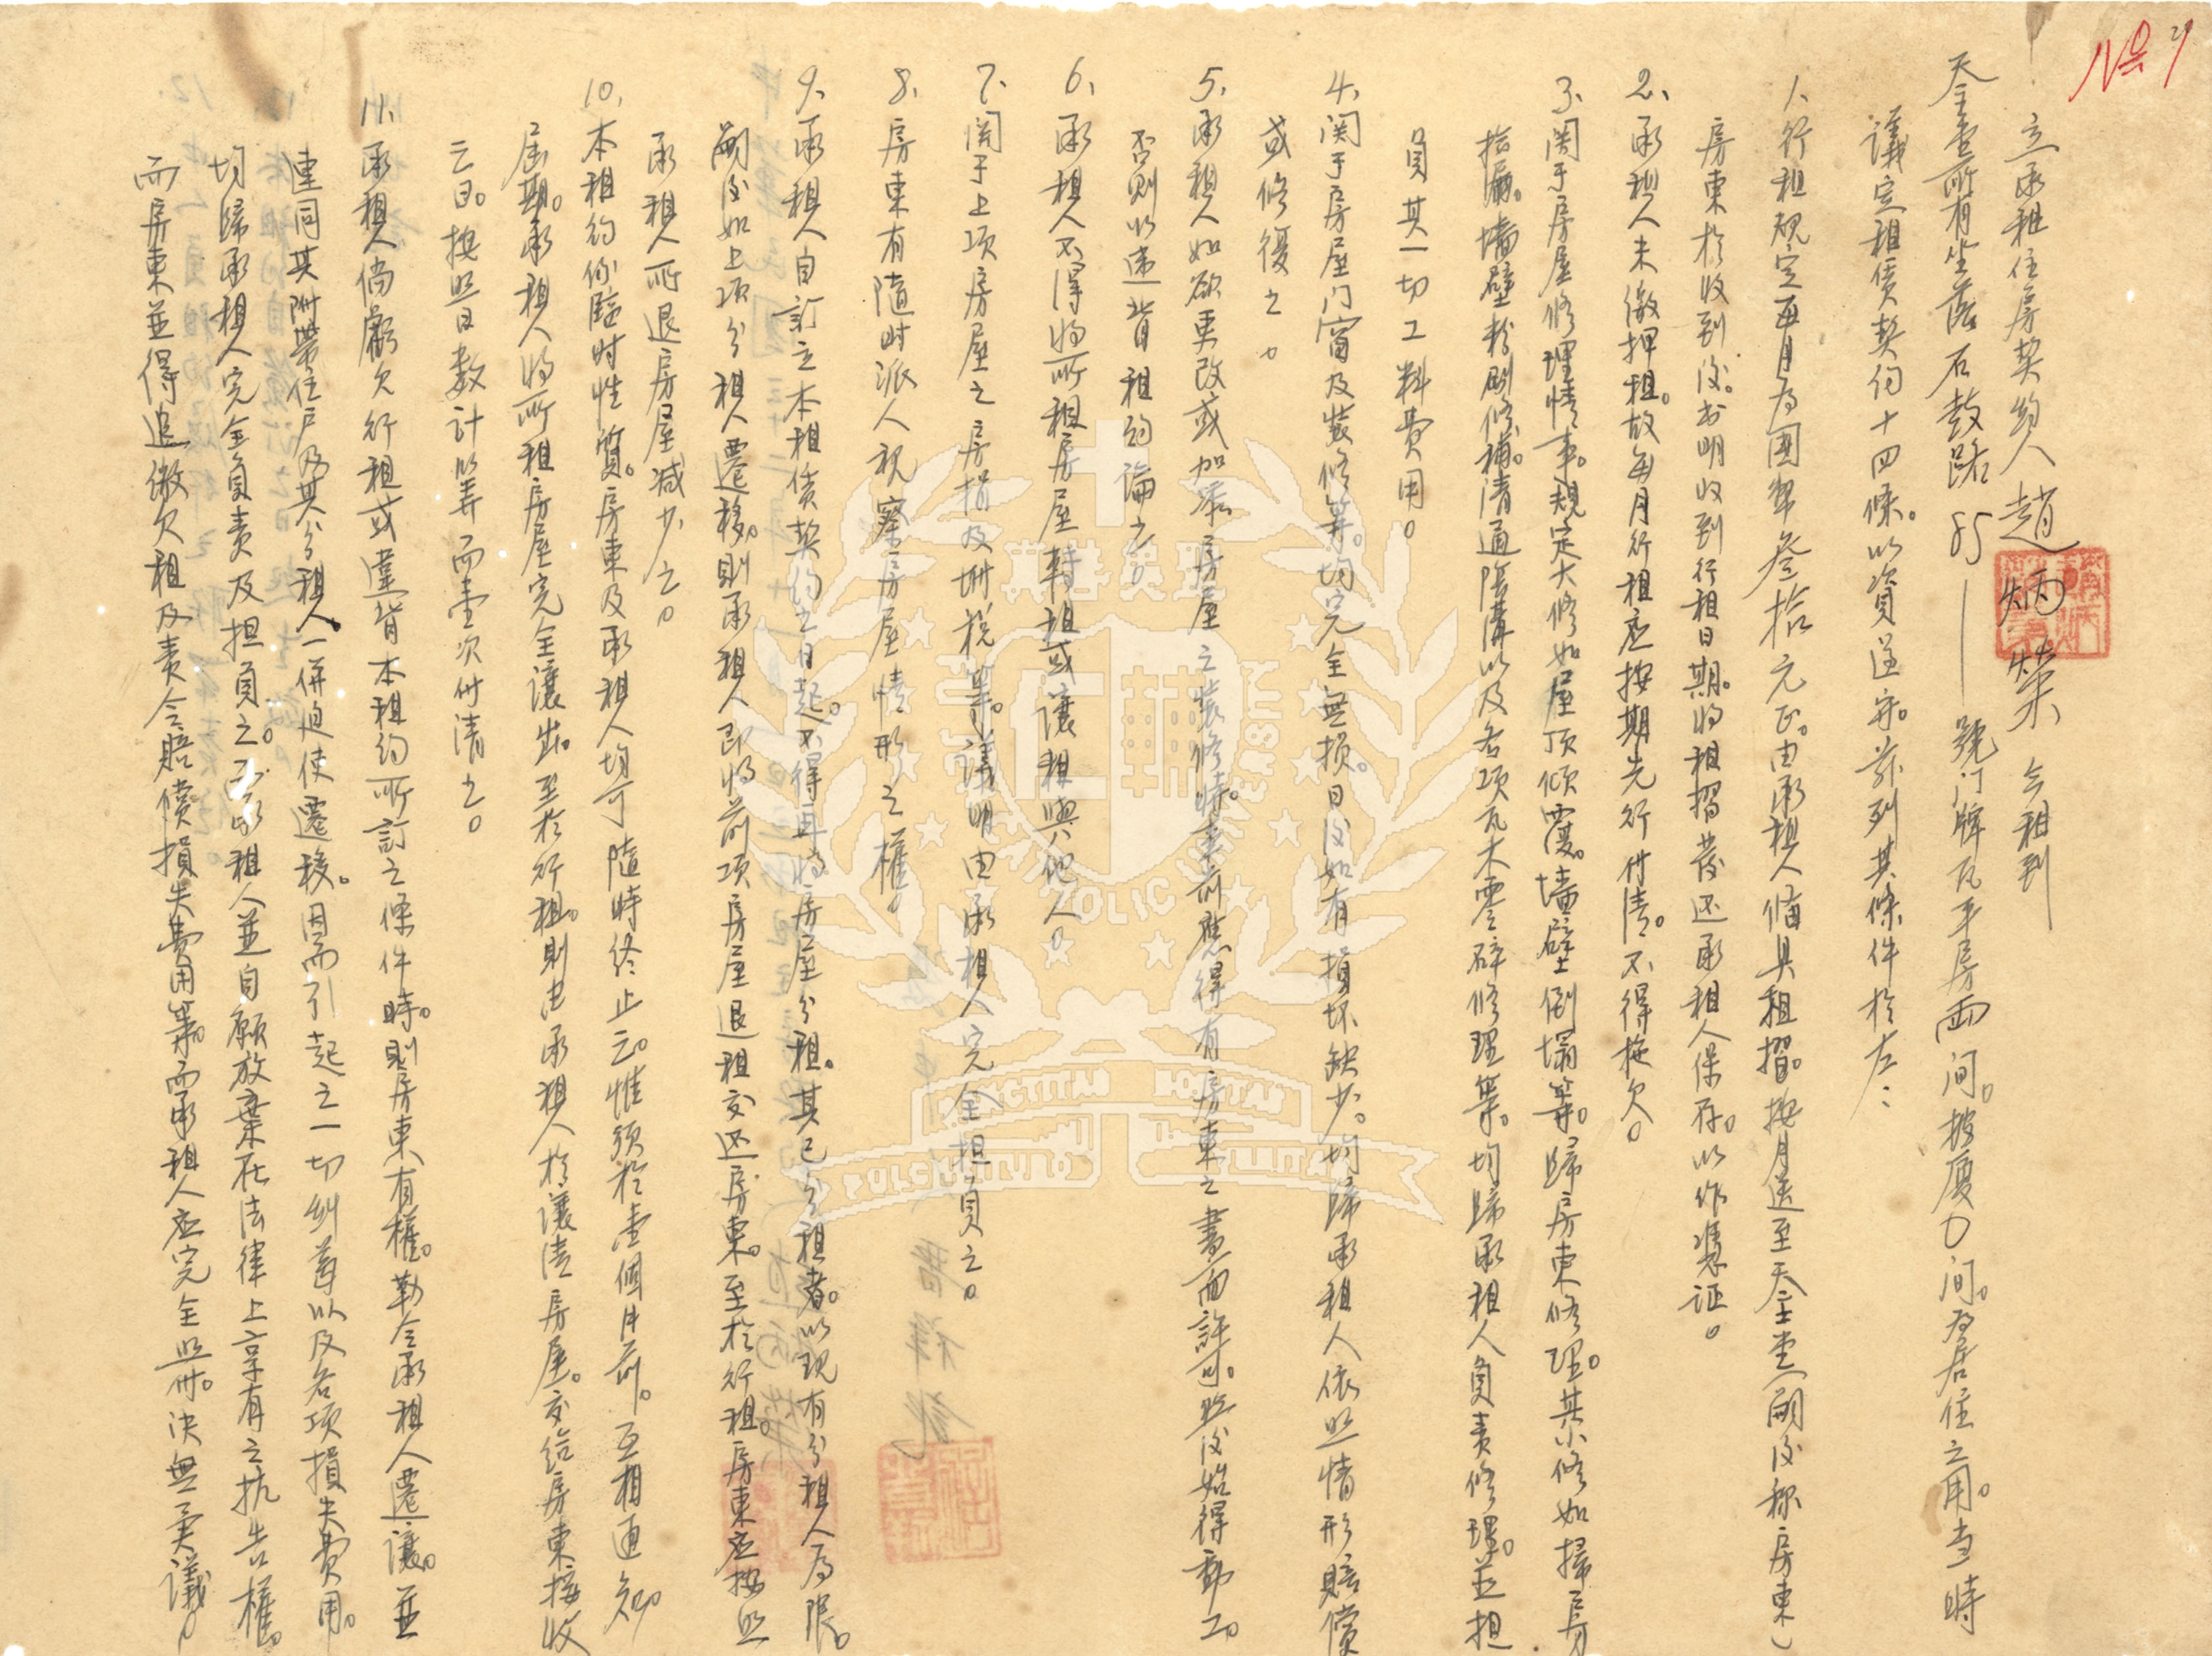 No 9
立承租住房契約人趙炳榮今租到
天主堂所有坐落石鼓路85——號门牌瓦平房兩间。披廈0间。為居住之用。当時
議定租賃契约十四條。以資遵守。茲列其條件於左:
1、行租規定每月為國幣叁拾元正。由承租人備具租摺。按月送至天主堂(嗣後称房東)
房東於收到後。书明收到行租日期。將租摺發还承租人保存。以作憑证。
2、承租人未繳押租。故每月行租应按期先行付清。不得拖欠。
3、関于房屋修理情事。規定大修如屋顶倾覆。墻壁倒塌等。歸房東修理。其小修如掃房
拾漏。墻壁粉刷修補。清通陰溝以及各项瓦木零碎修理等。均歸承租人負责修理。並担
負其一切工料費用。
4、関于房屋门窗及裝修等。均完全無損。日後如有損坏缺少。均歸承租人依照情形賠償
或修復之。
5、承租人如欲更改或加添房屋之裝修時。事前應得有房東之書面許可。然後始得動工。
否則以违背租约論之。
6、承租人不得将所租房屋轉租或讓租與他人。
7、関于上项房屋之房捐及地税等。議明由承租人完全担負之。
8、房東有隨时派人視察房屋情形之權。
9、承租人自訂立本租赁契约之日起。不得再将房屋分租。其已分租者。以现有分租人为限。
嗣後如上项分租人遷移。則承租人即将前项房屋退租交还房東。至於行租。房東应按照
承租人所退房屋減少之。
10、本租约係臨时性質。房東及承租人均可隨時終止之。惟須於壹個月前。互相通知。
屆期。承租人将所租房屋完全讓出。至於行租。則由承租人於讓清房屋。交给房東接收
之日。按照日数计算而壹次付清之。
11、承租人倘虧欠行租或違背本租约所訂之條件時。則房東有權。勒令承租人遷讓。並
連同其附帶住戶及其分租人一併迫使遷移。因而引起之一切糾葛以及各项損失費用。
均歸承租人完全負责及担負之。而承租人並自願放棄在法律上享有之抗告權。
而房東並得追繳欠租及责令賠償損失費用等。而承租人应完全照付。决無異議。